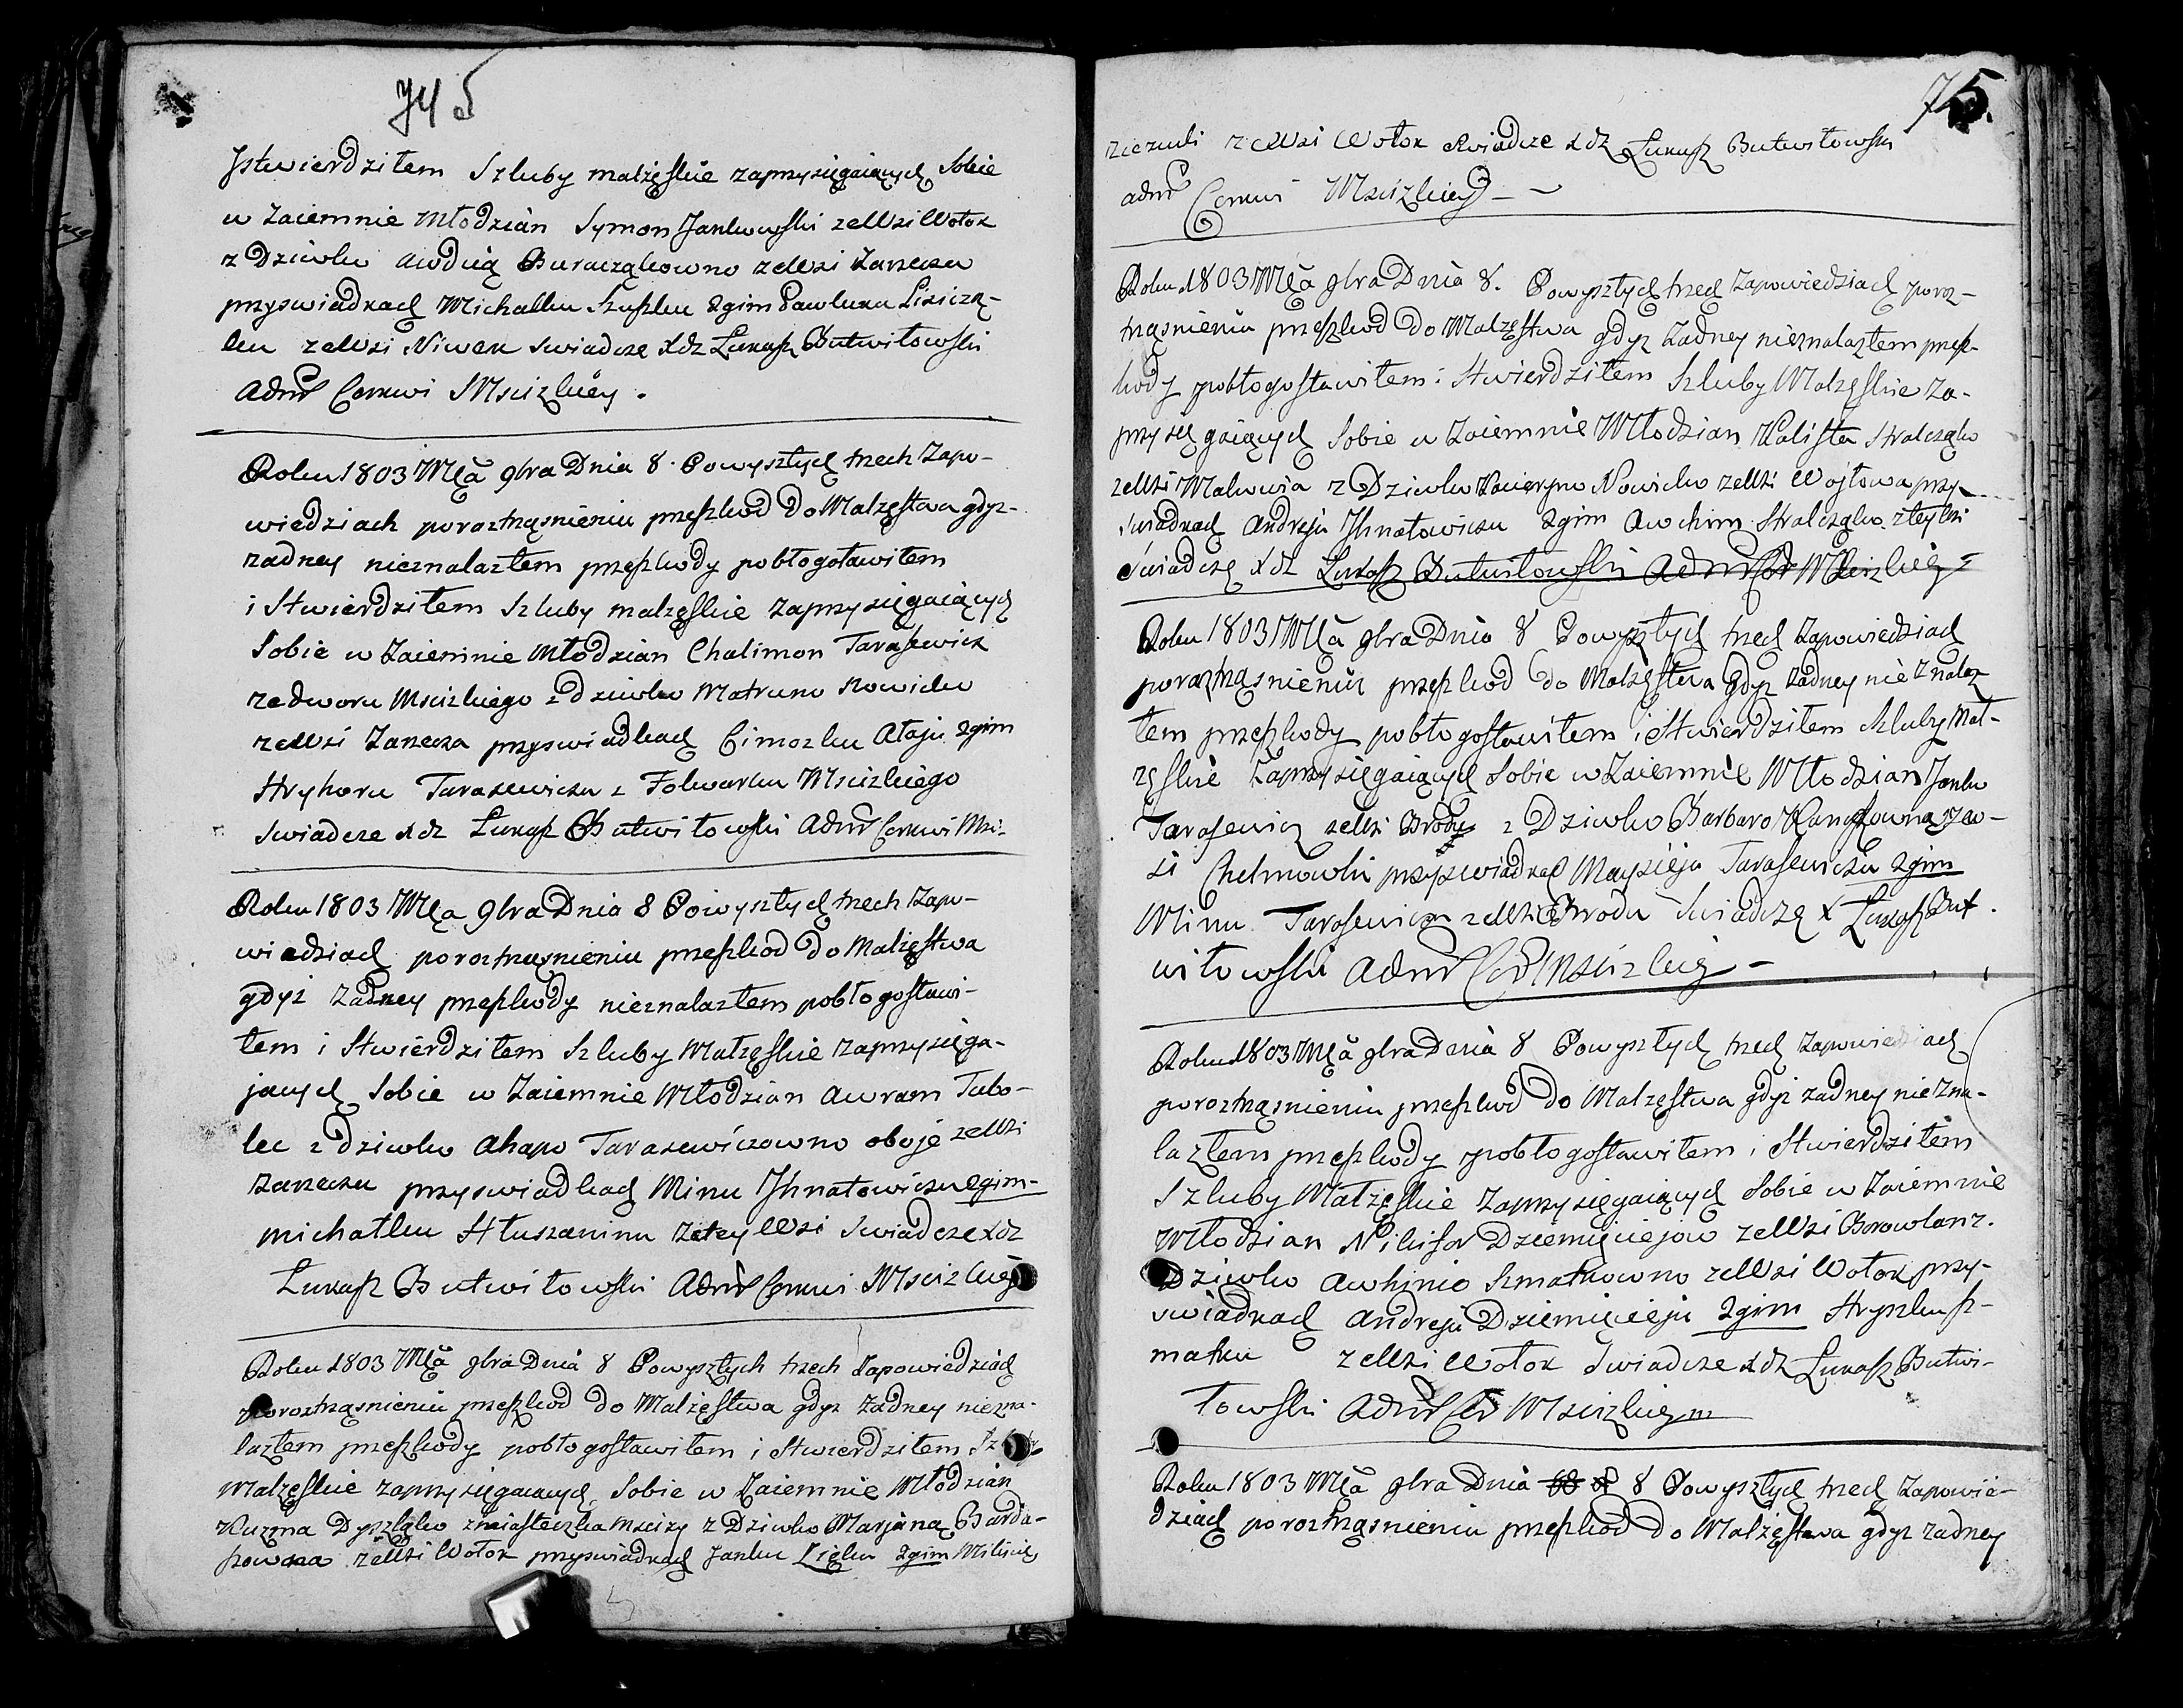 74 5
Jstwierdziłem Szluby małzęskie zaprzysięgaiących Sobie
w Zaiemnie Młodzian Symon Jankowski zeWsi Wołok
z Dziewko Awdiią Buracząkowno zeWsi Zarzecza
przyswiadkach Michałku Szuszku 2gim Pawluku Lisiczą-
ku zeWsi Niwek swiadczę Xdz Łukasz Butwiłowski
Admr Cerkwi Mscizkiey.
Roku 1803 Mca 9bra Dnia 8. Powyszłych trzech Zapo-
wiedziach poroztrząsnieniu przeszkod do Małzęstwa gdyz-
zadney nieznalazłem przeszkody pobłogoławiłem
i Stwierdziłem Szluby małzęskie zaprzysięgaiących
Sobie w Zaiemnie Młodzian Chalimon Tarasewicz
zedworu Mscizkiego z dziewko Matruno Nowicko
zeWsi Zarzecza przyswiadkach Cimoszku Ałaju 2gim
Hryhoru Tarasewiczu z Folwarku Mscizkiego
Swiadcze Xdz Łukasz Butwiłowski Admr Cerkwi Msci-
Roku 1803 Mca 9bra Dnia 8 Powyszłych trzech Zapo-
wiedziach poroztrząsnieniu przeszkod do Małzęstwa
gdyż żadney przeszkody nieznalazłem pobłogosławi-
łem i Stwierdziłem Szluby Małzęskie zaprzysięga-
jących Sobie w Zaiemnie Młodzian Awram Tubo-
lec z dziewko Ahapo Tarasewiczowno oboje zeWsi
Zarzecza przyswiadkach Minu Jhnatowiczu 2gim-
michałku Hłuszaninu zteyWsi Swiadcze Xdz
Łukasz Butwiłowski Admr Cerkwi Mscizkiey
Roku 1803 Mca 9bra Dnia 8 Powyszłych trzech Zapowiedziach
poroztrząsnieniu przeszkod do Małzęstwa gdyz żadney niezna-
lazłem przeszkody pobłogosławiłem i Stwierdziłem
Małzęskie zaprzysięgaiących Sobie w Zaiemnie Młodzian
Kuzma Dyszlako zmiasteczka Mscizy z Dziewko Marjaną Barda-
szowna zeWsi Wołok przyswiadkach Janku 2gim
75.
zeWsi Wołok Swiadcze Xdz Łukasz Butwiłowski
admr Cerkwi Mscizkiey —
Roku 1803 Mca 9bra Dnia 8. Powyszłych trzech Zapowiedziach poroz-
trząsnieniu przeszkod do Małzęstwa gdyz żadney nieznalazłem przesz-
kody pobłogosławiłem i Stwierdziłem Szluby Małzęskie Za-
przysięgaiących Sobie w Zaiemnie Młodzian Kalista Stralcząko
zeWsi Makowia z Dziewko Kacieryno Nowicko zeWsi Wojłowa przy-
swiadkach Andreju Jhnatowiczu 2gim Awchim Stralcząko zteyWsi
Swiadczę Xdz Łukasz Butwiłowski Admr Cer Mscizkiey
Roku 1803 Mca 9bra Dnia 8 Powyszłych trzech Zapowiedziach
poroztrząsnieniu przeszkod do Małzęstwa gdyz Żadney nieznalaz
łem przeszkody pobłogosławiłem i Stwierdziłem Szluby Mał-
zęskie Zaprzysięgaiących Sobie w Zaiemnie Młodzian Janko
Tarasewicz zeWsi Brody z Dziewko Barbaro zew-
si Chelmowki przyswiadkach Maysieju Tarasewiczu 2gim
Minu Tarasewiczu zeWsi Brodu Swiadczę X Łukasz But.
wiłowski Admr Cer Mscizkiey —
Roku 1803 Mca 9bra Dnia 8 Powyszłych trzech Zapowiedziach
poroztrząsnieniu przeszkod do Małzęstwa gdyz zadney niezna-
lazłem przeszkody pobłogosławiłem i Stwierdziłem
Szluby Małzęskie Zaprzysięgaiących Sobie w Zaiemnie
Młodzian Nikifor Dziemięciejow zeWsi Borowlan z.
Dziewko Awhinio Szmatkowno zeWsi Wołok przy-
swiadkach Andreju Dziemięcieju 2gim Hryszku Sz-
matku zeWsi Wołok Swiadcze Xdz Łukasz Butwi-
łowski Admr Cer Mscizkiey
Roku 1803 Mca 9bra Dnia 8 Powyszłych trzech Zapowie-
dziach poroztrząsnieniu przeszkod do Małzęstwa gdyz zadney